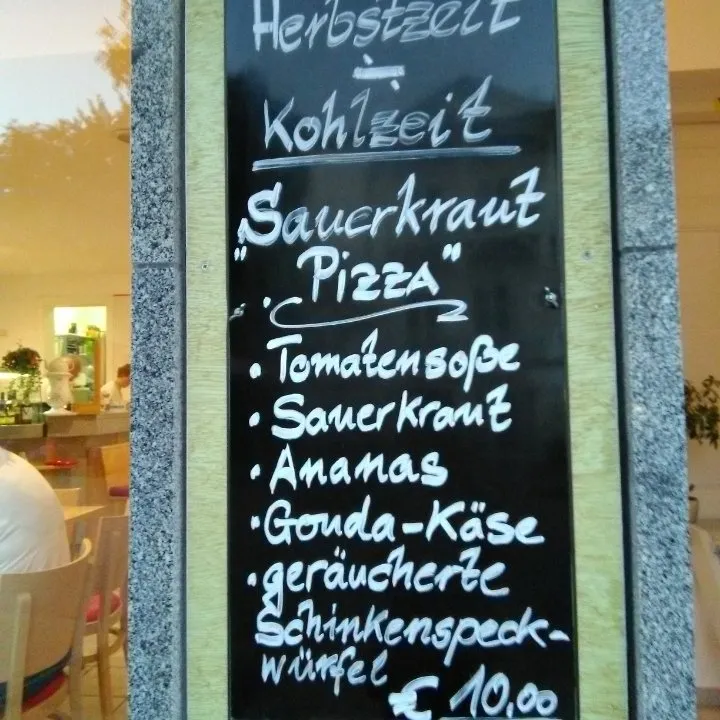 Herbstzeit
-
Kohlzeit
"Sauerkraut
Pizza"
• Tomatensoße
• Sauerkraut
• Ananas
• Gouda-Käse
• geräucherte
Schinkenspeck-
würfel
€ 10,00